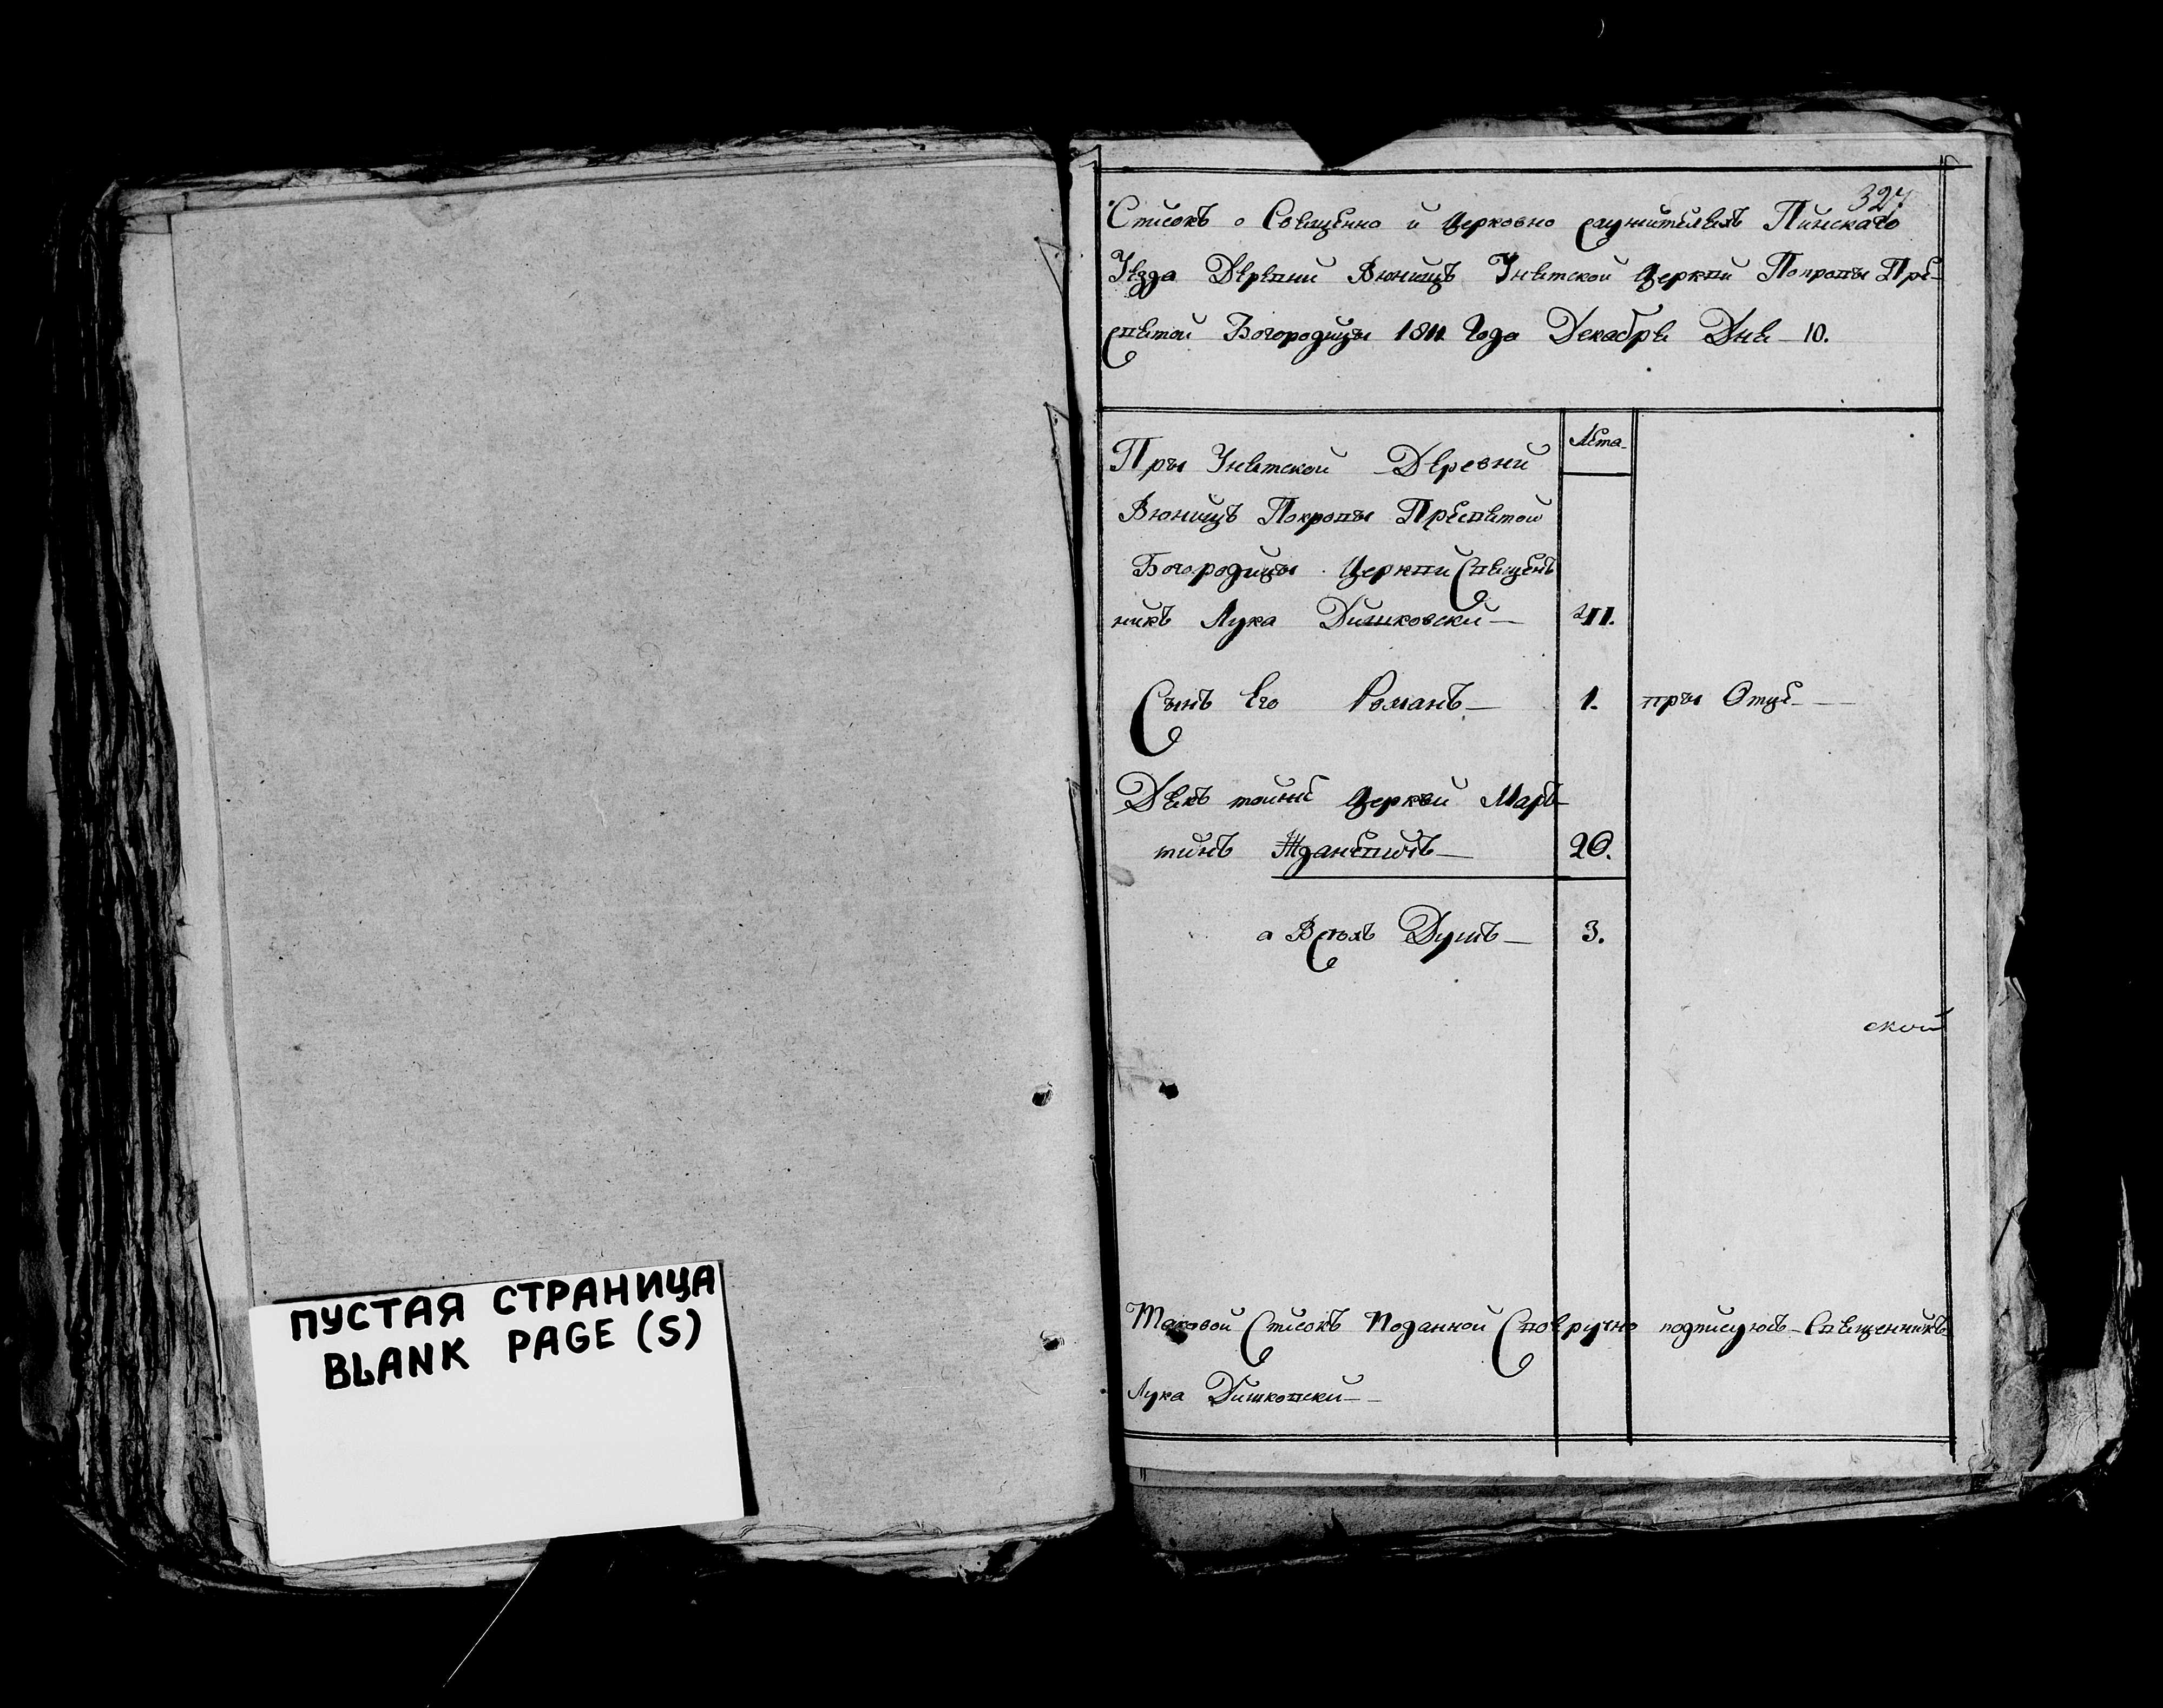 ПУСТАЯ СТРАНИЦА
BLANK PAGE (S)
327
Список о Священно и Церковно служителях Пинскаго
Уезда Деревни Вюнищъ Униатской Церкви Покровы Пре-
святой Богородицы 1811 Года Декабря Дня 10.
Лета
Пры Униатской Деревни
Вюнищъ Покровы Пресвятой
Богородицы Церкви Священъ
никъ Лука Дишковски
411.
Сынъ Его Романъ
1. пры Отце
Дякъ тойже Церкви Маръ
тинъ Жданевичъ
20.
а Всехъ Душъ
3.
ской
Таковой Список Поданной Своеручно подписуюсь Священникъ
Лука Дишковски